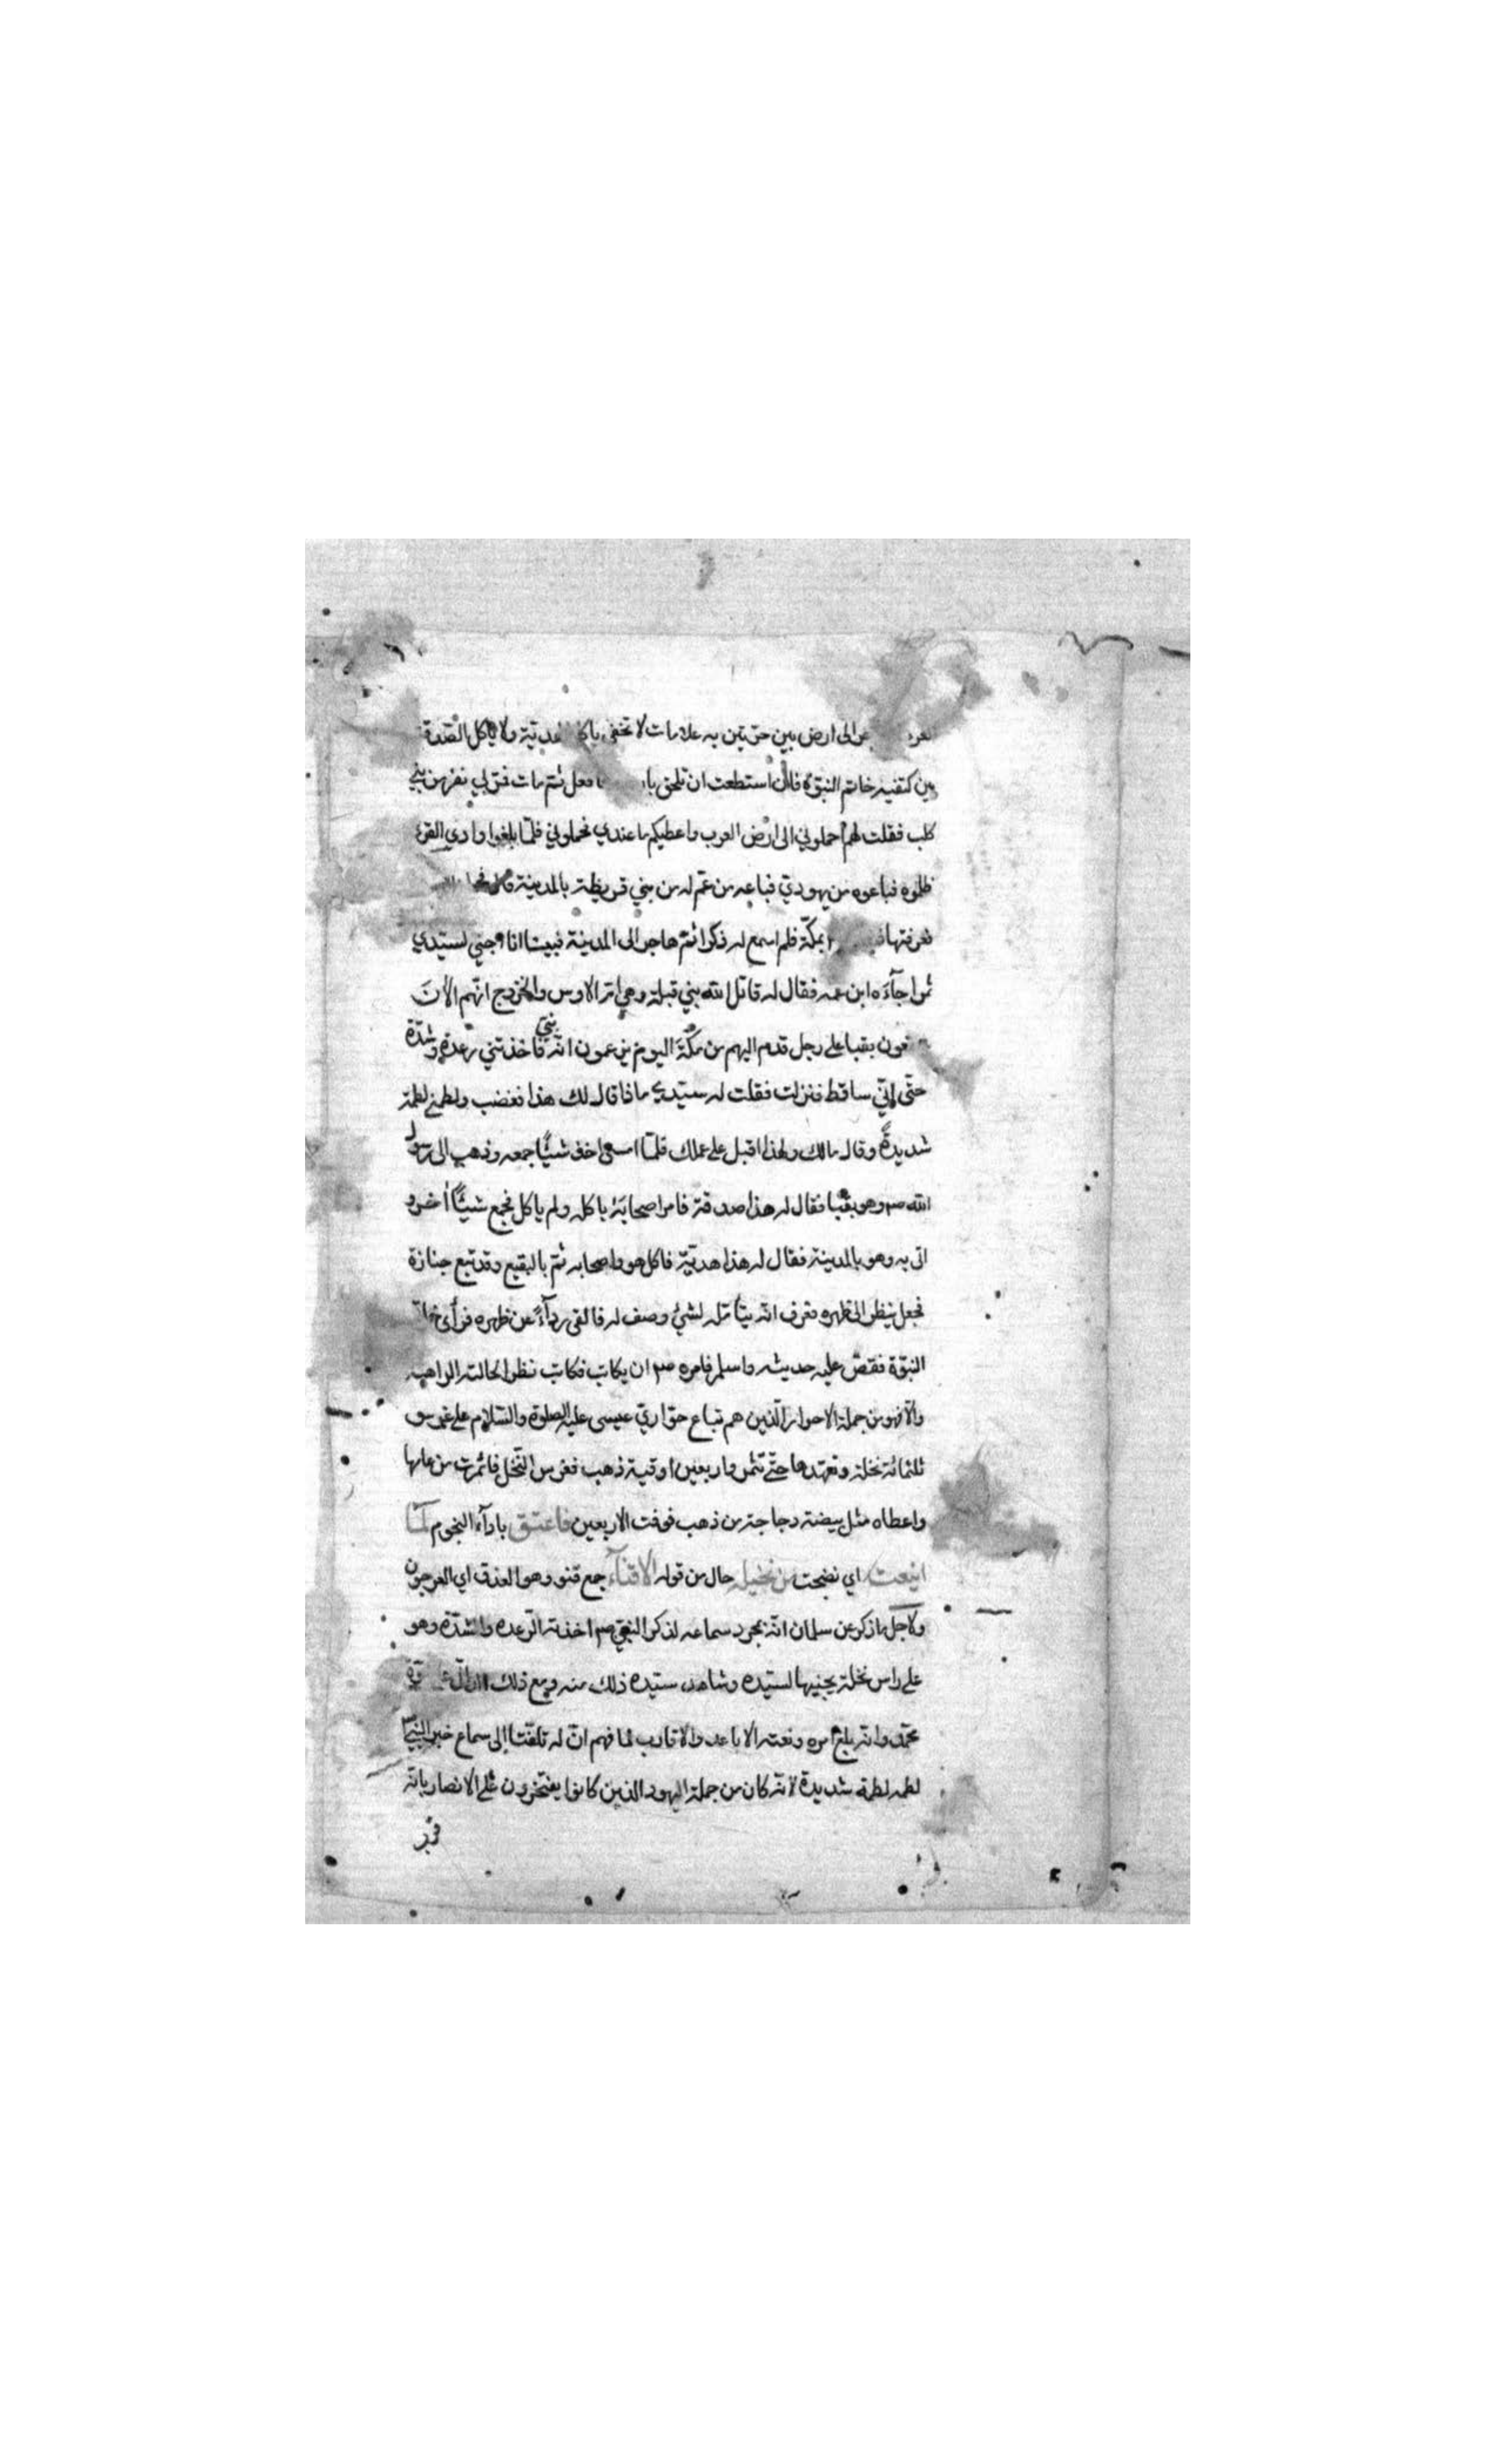 الى ارض بين حرتين به علامات لا تخفى ياكل الهدية ولا ياكل الصدقة
بين كتفيه خاتم النبوة فان استطعت ان تلحق فافعل ثم مات فمر بي نفر من بني
كلب فقلت لهم احملوني الى ارض العرب واعطيكم ما عندي فحملوني فلما بلغوا وادي القرى
ظلموه فباعوه من يهودي فباعه من عم له من بني قريظة بالمدينة
فعرفتها بمكة فلم اسمع له ذكرا ثم هاجر الى المدينة فبينا انا اجني لسيدي
ثمرا جآءه ابن عمه فقال له قاتل الله بني قيلة وهي ام الاوس والخزرج انهم الآن
بقبا على رجل قدم اليهم من مكة اليوم يزعمون انه نبي فاخذتني رعدة وشدة
حتى اني ساقط فنزلت فقلت له سيدي ماذا قال لك هذا فغضب ولطمني لطمة
شديدة وقال مالك ولهذا اقبل على عملك فلما امسى اخذ شيئا جمعه وذهب الى رسول
الله صم وهو بقبا فقال له هذا صدقة فامر اصحابه باكله ولم ياكل فجمع شيئا اخر و
اتى به وهو بالمدينة فقال له هذا هدية فاكل هو واصحابه ثم بالبقيع وقد تبع جنازة
فجعل ينظر الى ظهره فعرف انه يتأمل لشئ وصف له فالقى ردآءه عن ظهره فرأى خاتم
النبوة فقص عليه حديثه واسلم فامره صم ان يكاتب فكاتب نظرا لحالته الراهبه
والا فهو من جملة الاحرار الذين هم تباع حواري عيسى عليه الصلوة والسلام على غرس
ثلثمائة نخلة وتعهدها حتى تثمر واربعين اوقية ذهب فغرس النخل فاثمرت من عامها
واعطاه مثل بيضة دجاجة من ذهب فوفت الاربعين فاعتق بادآء النجوم لما
اينعت اي نضجت من نخيله حال من قوله الاقنآء جمع قنو وهو العذق اي العرجون
ولاجل ما ذكر عن سلمان انه بمجرد سماعه لذكر النبي صم اخذته الرعده والشدة وهو
على راس نخلة يجنيها لسيده وشاهد سيده ذلك منه ومع ذلك
محمد وانه بلغ امره ونعته الاباعد والاقارب لما فهم ان له تلفتا الى سماع خبر النبي صم
لطمه لطمة شديدة لانه كان من جملة اليهود الذين كانوا يفتخرون على الانصار بانه